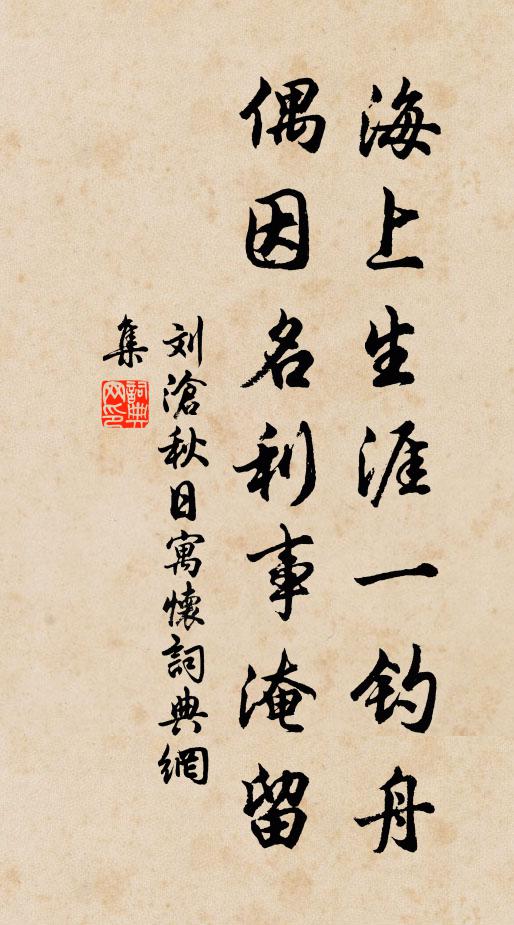 海上生涯一钓舟
偶因名利事淹留
刘滄秋日寓懷詞典網
集
詞典
网印